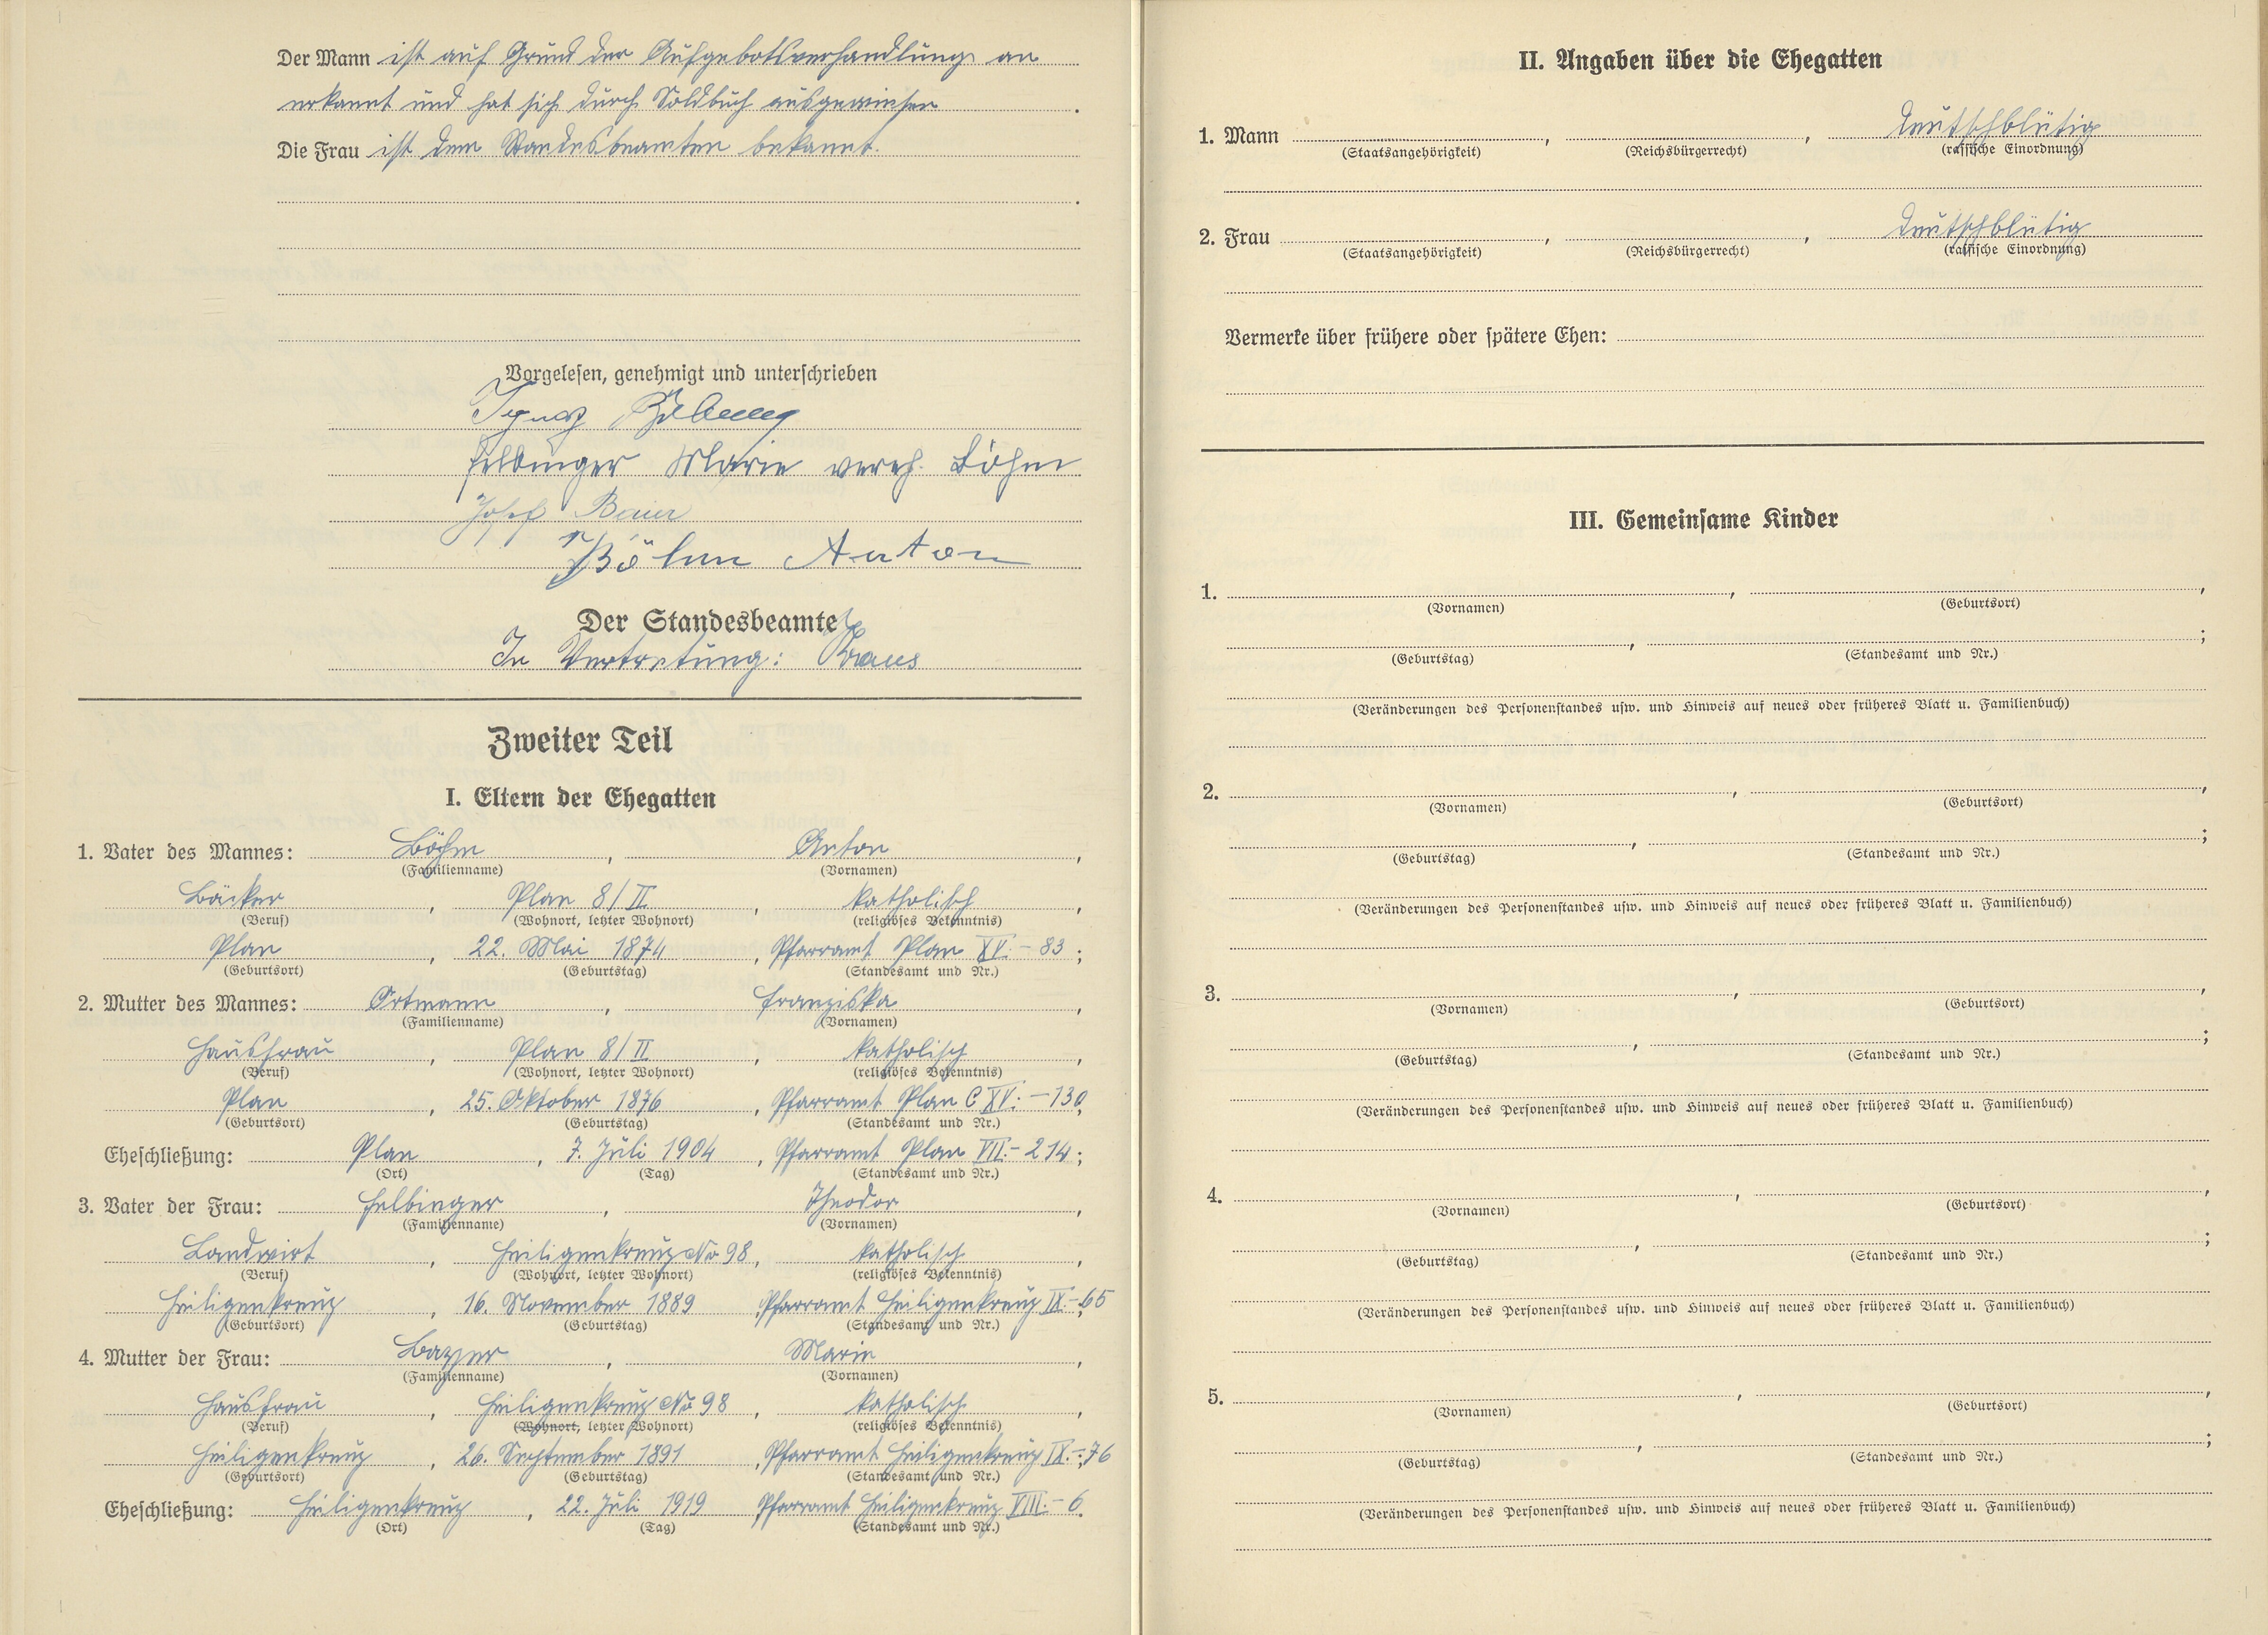 Der Mann ist auf Grund der Aufgebotsverhandlung an
erkannt und hat sich durch Soldbuch ausgewiesen .
Die Frau ist dem Standesbeamten bekannt.
Vorgelesen, genehmigt und unterschrieben
Ignaz
Felbinger Marie vereh. Böhm
Josef Baier
Böhm Anton
Der Standesbeamte
In Vertretung: Kraus
Zweiter Teil
I. Eltern der Ehegatten
1. Vater des Mannes: Böhm , Anton ,
(Familienname) (Vornamen)
Bäcker , Plan 8/II , katholisch ,
(Beruf) (Wohnort, letzter Wohnort) (religiöses Bekenntnis)
Plan , 22. Mai 1874 , Pfarramt Plan XV.-83 ;
(Geburtsort) (Geburtstag) (Standesamt und Nr.)
2. Mutter des Mannes: Ortmann , Franziska ,
(Familienname) (Vornamen)
Hausfrau , Plan 8/II , katholisch ,
(Beruf) (Wohnort, letzter Wohnort) (religiöses Bekenntnis)
Plan , 25. Oktober 1876 , Pfarramt Plan C XV.-130,
(Geburtsort) (Geburtstag) (Standesamt und Nr.)
Eheschließung: Plan , 7. Juli 1904 , Pfarramt Plan VII.-214;
(Ort) (Tag) (Standesamt und Nr.)
3. Vater der Frau: Felbinger , Theodor ,
(Familienname) (Vornamen)
Landwirt , Heiligenkreuz No 98, katholisch ,
(Beruf) (Wohnort, letzter Wohnort) (religiöses Bekenntnis)
Heiligenkreuz , 16. November 1889 , Pfarramt Heiligenkreuz IX.-65
(Geburtsort) (Geburtstag) (Standesamt und Nr.)
4. Mutter der Frau: Bayer , Marie ,
(Familienname) (Vornamen)
Hausfrau , Heiligenkreuz No 98 , katholisch ,
(Beruf) (Wohnort, letzter Wohnort) (religiöses Bekenntnis)
Heiligenkreuz , 26. September 1891 , Pfarramt Heiligenkreuz IX.-76
(Geburtsort) (Geburtstag) (Standesamt und Nr.)
Eheschließung: Heiligenkreuz , 22. Juli 1919 Pfarramt Heiligenkreuz VIII.-6.
(Ort) (Tag) (Standesamt und Nr.)
II. Angaben über die Ehegatten
1. Mann , , deutschblütig
(Staatsangehörigkeit) (Reichsbürgerrecht) (rassische Einordnung)
2. Frau , , deutschblütig
(Staatsangehörigkeit) (Reichsbürgerrecht) (rassische Einordnung)
Vermerke über frühere oder spätere Ehen:
III. Gemeinsame Kinder
1. , ,
(Vornamen) (Geburtsort)
, ;
(Geburtstag) (Standesamt und Nr.)
(Veränderungen des Personenstandes usw. und Hinweis auf neues oder früheres Blatt u. Familienbuch)
2. , ,
(Vornamen) (Geburtsort)
, ;
(Geburtstag) (Standesamt und Nr.)
(Veränderungen des Personenstandes usw. und Hinweis auf neues oder früheres Blatt u. Familienbuch)
3. , ,
(Vornamen) (Geburtsort)
, ;
(Geburtstag) (Standesamt und Nr.)
(Veränderungen des Personenstandes usw. und Hinweis auf neues oder früheres Blatt u. Familienbuch)
4. , ,
(Vornamen) (Geburtsort)
, ;
(Geburtstag) (Standesamt und Nr.)
(Veränderungen des Personenstandes usw. und Hinweis auf neues oder früheres Blatt u. Familienbuch)
5. , ,
(Vornamen) (Geburtsort)
, ;
(Geburtstag) (Standesamt und Nr.)
(Veränderungen des Personenstandes usw. und Hinweis auf neues oder früheres Blatt u. Familienbuch)